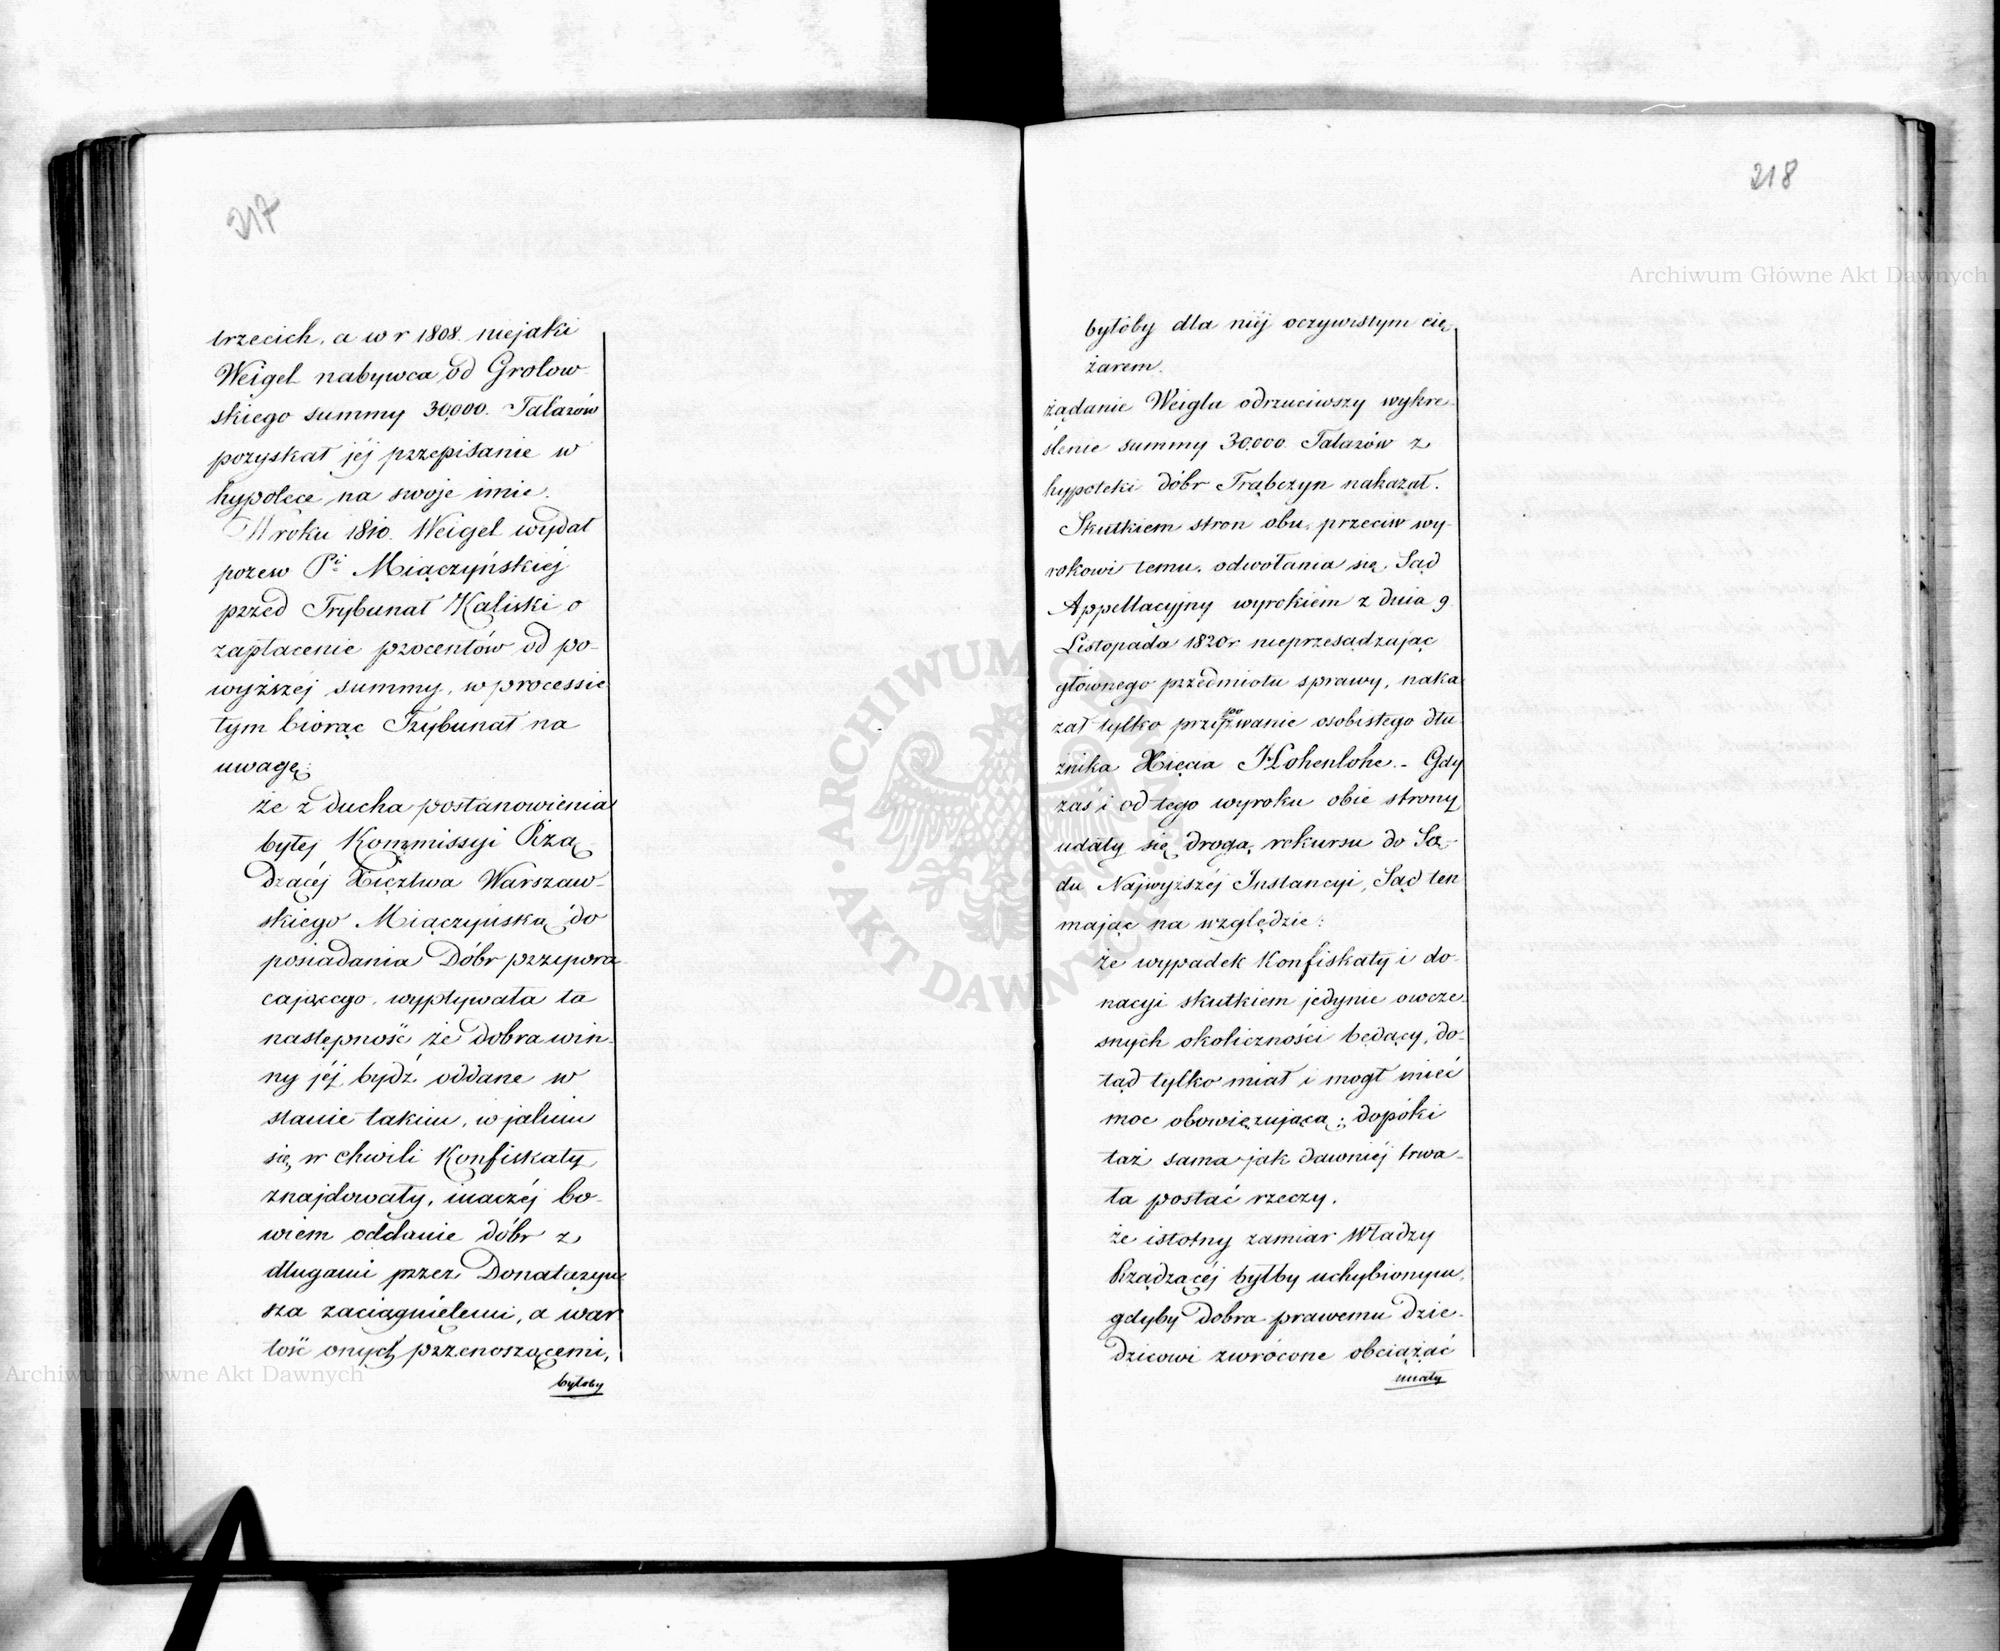 217
trzecich, a w r 1808. niejaki
Weigel nabywca od Grolow
skiego summy 30,000. Talarów
pozyskał jéj przepisanie w
hypotece na swoje imie.
W roku 1810. Weigel wydał
pozew Pi Miączyńskiéj
przed Trybunał Kaliski o
zapłacenie procentów od po-
wyższéj summy, w processie
tym biorąc Trybunał na
uwagę:
że z ducha postanowienia
byłej Kommissyi Rzą
dzącéj Xięztwa Warszaw-
skiego Miączyńską do
posiadania Dóbr przywra
cającego, wypływała ta
następność że dobra win-
ny jéj bydź oddane w
stanie takim, w jakim
się w chwili Konfiskaty
znajdowały, inaczéj bo-
wiem oddanie dóbr z
długami przez Donataryu
sza zaciągnietemi, a war
tość onych przenoszącemi,
byłoby
218
byłoby dla niéj oczywistym cię
żarem.
żądanie Weigla odrzuciwszy wykre-
ślenie summy 30.000 Talarów z
hypoteki dóbr Trąbczyn nakazał.
Skutkiem stron obu, przeciw wy-
rokowi temu, odwołania się, Sąd
Appellacyjny wyrokiem z dnia 9
Listopada 1820 r nieprzesądzając
głównego przedmiotu sprawy, naka
zał tylko przypozwanie osobistego dłu
żnika Xięcia Hohenlohe. - Gdy
zaś i od tego wyroku obie strony
udały się drogą rekursu do Są-
du Najwyższéj Instancyi, Sąd ten
mając na względzie:
że wypadek Konfiskaty i do-
nacyi skutkiem jedynie owcze-
snych okoliczności będący, do-
tąd tylko miał i mogł mieć
moc obowięzującą; dopóki
taż sama jak dawniéj trwa-
ła postać rzeczy.
że istotny zamiar Władzy
Rządzącéj byłby uchybionym,
gdyby Dobra prawemu dzie-
dzicowi zwrócone obciążać
miały
ARCHIWUM GŁÓWNE AKT DAWNYCH
Archiwum Główne Akt Dawnych
Archiwum Główne Akt Dawnych